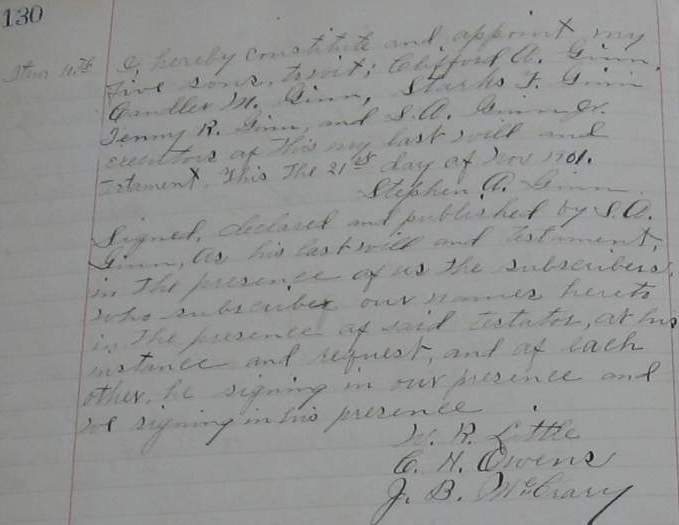 130
Item 11th I, hereby constitute and appoint my
five sons, towit; Clifford A. Ginn,
Candler M. Ginn, Starks F. Ginn
Fenny R. Ginn, and S.A. Ginn Jr.
executors of this my last will and
testament. This The 21st day of Nov 1901.
Stephen A. Ginn
Signed, declared and published by S.A.
Ginn, as his last will and testament,
in The presence of us the subscribers,
who subscribe our names hereto
in The presence of said testator, at his
instance and request, and of each
other, he signing in our presence and
we signing in his presence.
W. R. Little
C. H. Owens
J. B. McCrary